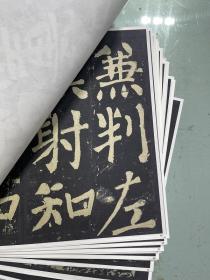 兼判左
射知